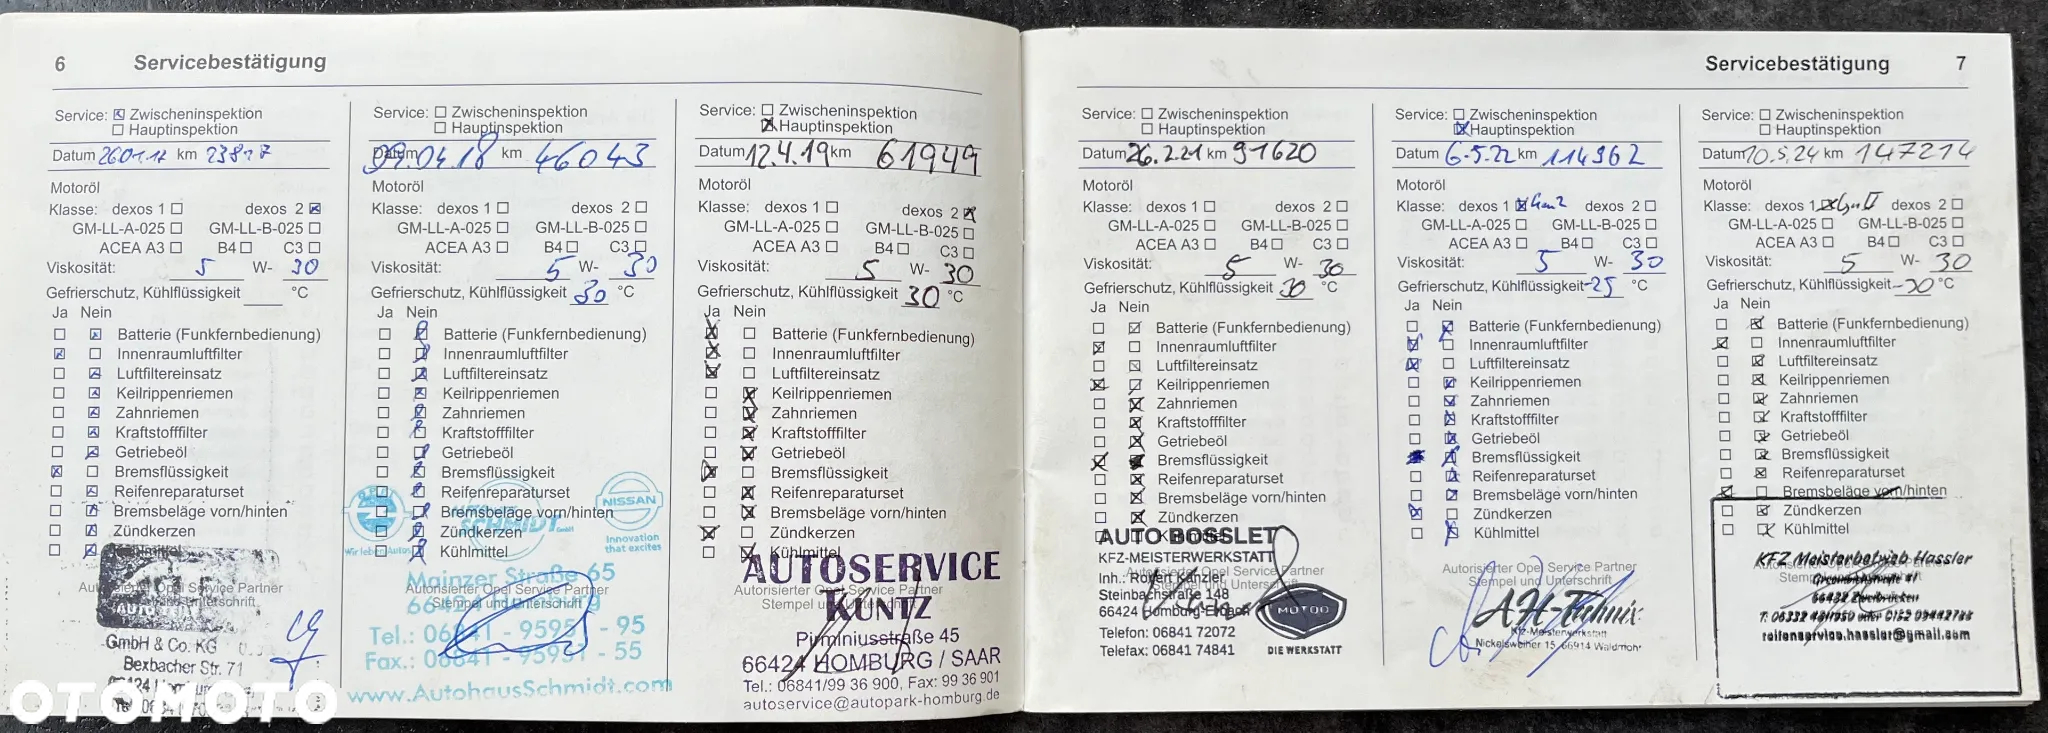 6 Servicebestätigung
Service: Zwischeninspektion
Hauptinspektion
Datum 26.01.17 km 23817
Motoröl
Klasse: dexos 1 dexos 2
GM-LL-A-025 GM-LL-B-025
ACEA A3 B4 C3
Viskosität: 5 W- 30
Gefrierschutz, Kühlflüssigkeit °C
Ja Nein
Batterie (Funkfernbedienung)
Innenraumluftfilter
Luftfiltereinsatz
Keilrippenriemen
Zahnriemen
Kraftstofffilter
Getriebeöl
Bremsflüssigkeit
Reifenreparaturset
Bremsbeläge vorn/hinten
Zündkerzen
Kühlmittel
Autorisierter Opel Service Partner
Stempel und Unterschrift
GmbH & Co. KG
Bexbacher Str. 71
Service: Zwischeninspektion
Hauptinspektion
Datum 09.04.18 km 46043
Motoröl
Klasse: dexos 1 dexos 2
GM-LL-A-025 GM-LL-B-025
ACEA A3 B4 C3
Viskosität: 5 W- 30
Gefrierschutz, Kühlflüssigkeit 30 °C
Ja Nein
Batterie (Funkfernbedienung)
Innenraumluftfilter
Luftfiltereinsatz
Keilrippenriemen
Zahnriemen
Kraftstofffilter
Getriebeöl
Bremsflüssigkeit
Reifenreparaturset
Bremsbeläge vorn/hinten
Zündkerzen
Kühlmittel
SCHMIDT GmbH
NISSAN
Innovation
that excites
Wir leben Autos
Mainzer Straße 65
Autorisierter Opel Service Partner
Stempel und Unterschrift
Tel.: 06841 - 95951 - 95
Fax.: 06841 - 95951 - 55
www.AutohausSchmidt.com
Service: Zwischeninspektion
Hauptinspektion
Datum 12.4.19 km 61949
Motoröl
Klasse: dexos 1 dexos 2
GM-LL-A-025 GM-LL-B-025
ACEA A3 B4 C3
Viskosität: 5 W- 30
Gefrierschutz, Kühlflüssigkeit 30 °C
Ja Nein
Batterie (Funkfernbedienung)
Innenraumluftfilter
Luftfiltereinsatz
Keilrippenriemen
Zahnriemen
Kraftstofffilter
Getriebeöl
Bremsflüssigkeit
Reifenreparaturset
Bremsbeläge vorn/hinten
Zündkerzen
Kühlmittel
AUTOSERVICE
Autorisierter Opel Service Partner
Stempel und Unterschrift
KUNTZ
Pirminiusstraße 45
66424 HOMBURG / SAAR
Tel.: 06841/99 36 900, Fax: 99 36 901
autoservice@autopark-homburg.de
Servicebestätigung 7
Service: Zwischeninspektion
Hauptinspektion
Datum 26.2.21 km 91620
Motoröl
Klasse: dexos 1 dexos 2
GM-LL-A-025 GM-LL-B-025
ACEA A3 B4 C3
Viskosität: 5 W- 30
Gefrierschutz, Kühlflüssigkeit 30 °C
Ja Nein
Batterie (Funkfernbedienung)
Innenraumluftfilter
Luftfiltereinsatz
Keilrippenriemen
Zahnriemen
Kraftstofffilter
Getriebeöl
Bremsflüssigkeit
Reifenreparaturset
Bremsbeläge vorn/hinten
Zündkerzen
Kühlmittel
AUTO BOSSLET
KFZ-MEISTERWERKSTATT
Autorisierter Opel Service Partner
Inh.: Robert Kanzler
Stempel und Unterschrift
Steinbachstraße 148
66424 Homburg-Erbach
Telefon: 06841 72072
Telefax: 06841 74841
MOTOO
DIE WERKSTATT
Service: Zwischeninspektion
Hauptinspektion
Datum 6.5.22 km 114962
Motoröl
Klasse: dexos 1 Gen2 dexos 2
GM-LL-A-025 GM-LL-B-025
ACEA A3 B4 C3
Viskosität: 5 W- 30
Gefrierschutz, Kühlflüssigkeit -25 °C
Ja Nein
Batterie (Funkfernbedienung)
Innenraumluftfilter
Luftfiltereinsatz
Keilrippenriemen
Zahnriemen
Kraftstofffilter
Getriebeöl
Bremsflüssigkeit
Reifenreparaturset
Bremsbeläge vorn/hinten
Zündkerzen
Kühlmittel
Autorisierter Opel Service Partner
Stempel und Unterschrift
Kfz-Meisterwerkstatt
Nickelsweiher 15, 66914 Waldmohr
Service: Zwischeninspektion
Hauptinspektion
Datum 10.5.24 km 147214
Motoröl
Klasse: dexos 1 Gen II dexos 2
GM-LL-A-025 GM-LL-B-025
ACEA A3 B4 C3
Viskosität: 5 W- 30
Gefrierschutz, Kühlflüssigkeit -30 °C
Ja Nein
Batterie (Funkfernbedienung)
Innenraumluftfilter
Luftfiltereinsatz
Keilrippenriemen
Zahnriemen
Kraftstofffilter
Getriebeöl
Bremsflüssigkeit
Reifenreparaturset
Bremsbeläge vorn/hinten
Zündkerzen
Kühlmittel
KFZ Meisterbetrieb Hassler
66482 Zweibrücken
reifenservice.hassler@gmail.com
OTOMOTO